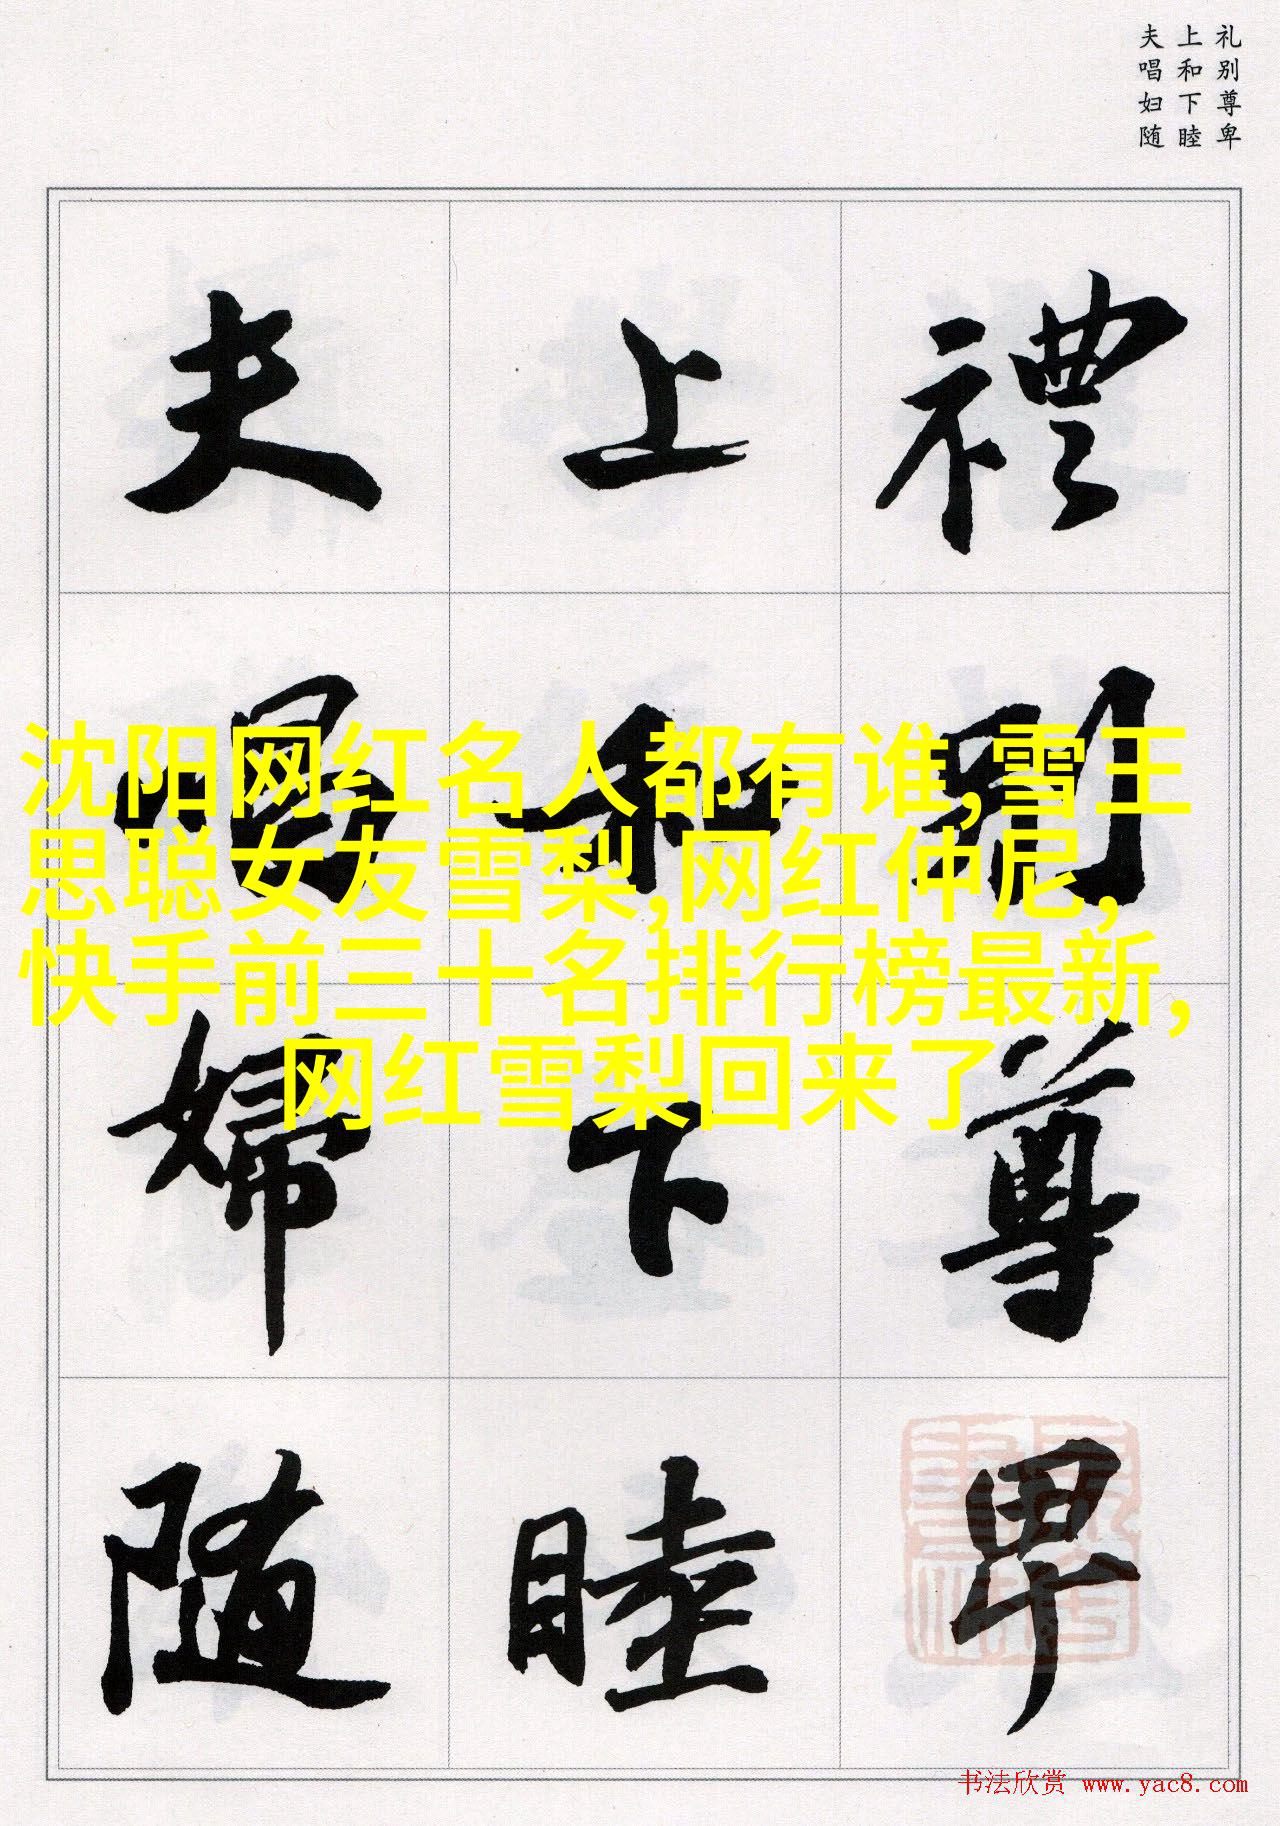 礼别尊卑
上和下睦
夫唱妇随
禮別尊卑
上和下睦
夫唱婦随
沈阳网红名人都有谁,雪王
思聪女友雪梨,网红仲尼,
快手前三十名排行榜最新,
网红雪梨回来了
书法欣赏 www.yac8.com